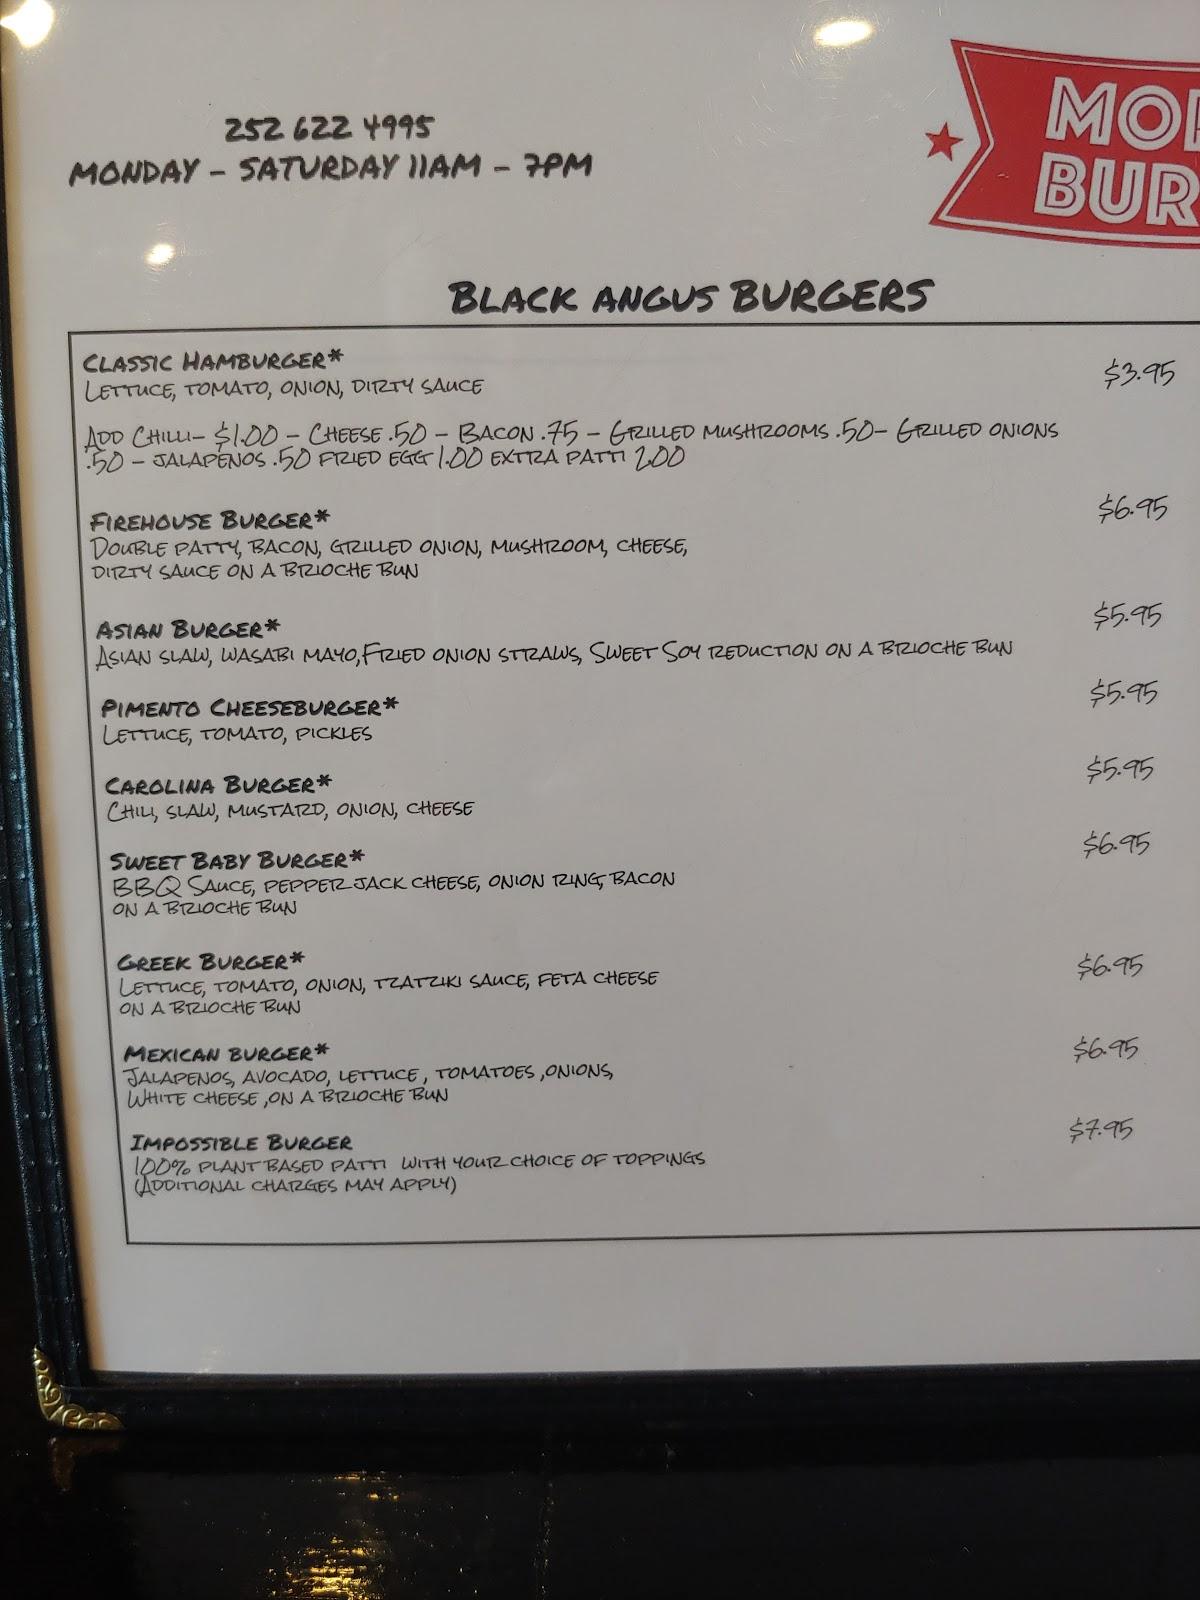 252 622 4995
MONDAY - SATURDAY 11AM - 7PM
BLACK ANGUS BURGERS
CLASSIC HAMBURGER* $3.95
LETTUCE, TOMATO, ONION, DIRTY SAUCE
ADD CHILLI- $1.00 - CHEESE .50 - BACON .75 - GRILLED MUSHROOMS .50- GRILLED ONIONS
.50 - JALAPENOS .50 FRIED EGG 1.00 EXTRA PATTI 2.00
FIREHOUSE BURGER* $6.95
DOUBLE PATTY, BACON, GRILLED ONION, MUSHROOM, CHEESE,
DIRTY SAUCE ON A BRIOCHE BUN
ASIAN BURGER* $5.95
ASIAN SLAW, WASABI MAYO,FRIED ONION STRAWS, SWEET SOY REDUCTION ON A BRIOCHE BUN
PIMENTO CHEESEBURGER* $5.95
LETTUCE, TOMATO, PICKLES
CAROLINA BURGER* $5.95
CHILI, SLAW, MUSTARD, ONION, CHEESE
SWEET BABY BURGER* $6.95
BBQ SAUCE, PEPPER JACK CHEESE, ONION RING, BACON
ON A BRIOCHE BUN
GREEK BURGER* $6.95
LETTUCE, TOMATO, ONION, TZATZIKI SAUCE, FETA CHEESE
ON A BRIOCHE BUN
MEXICAN BURGER* $6.95
JALAPENOS, AVOCADO, LETTUCE , TOMATOES ,ONIONS,
WHITE CHEESE ,ON A BRIOCHE BUN
IMPOSSIBLE BURGER $7.95
100% PLANT BASED PATTI WITH YOUR CHOICE OF TOPPINGS
(ADDITIONAL CHARGES MAY APPLY)